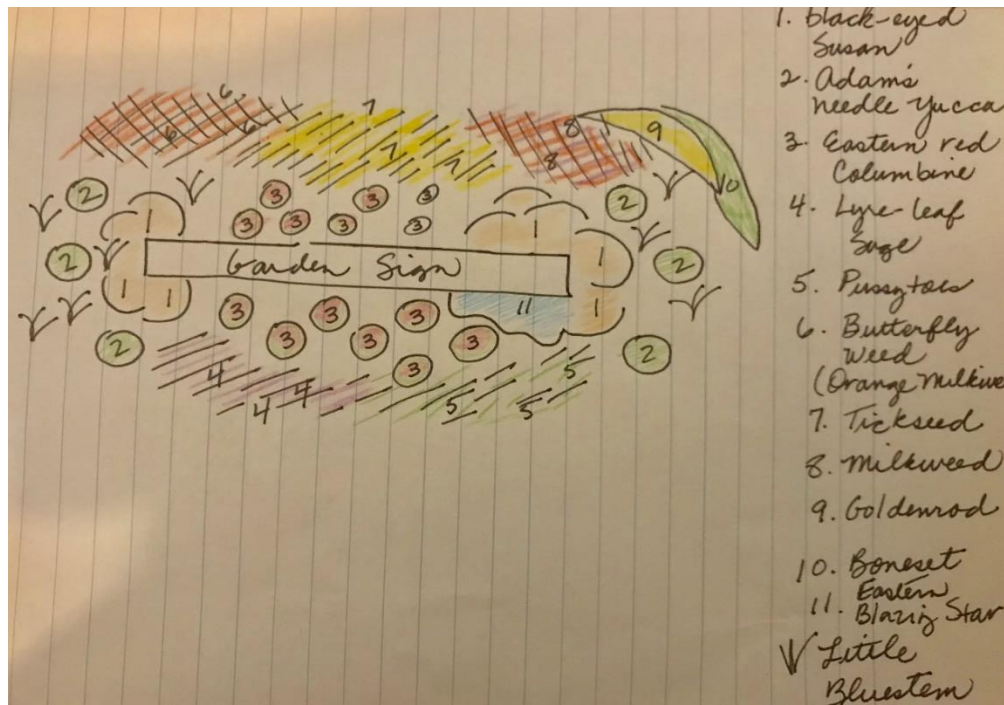 6 7 8 9
6 6 7 7 8 10
2 3 3 3 2
1 3 3 3 3 1
2 Garden Sign 1 2
1 1 3 3 3 11 1
2 3 3 3 2
4 4 3 5
4 5 5
1. black-eyed
Susan
2. Adam's
needle yucca
3. Eastern red
Columbine
4. Lyre-leaf
Sage
5. Pussytoes
6. Butterfly
weed
(Orange Milkwe
7. Tickseed
8. Milkweed
9. Goldenrod
10. Boneset
Eastern
11. Blazing Star
Little
Bluestem